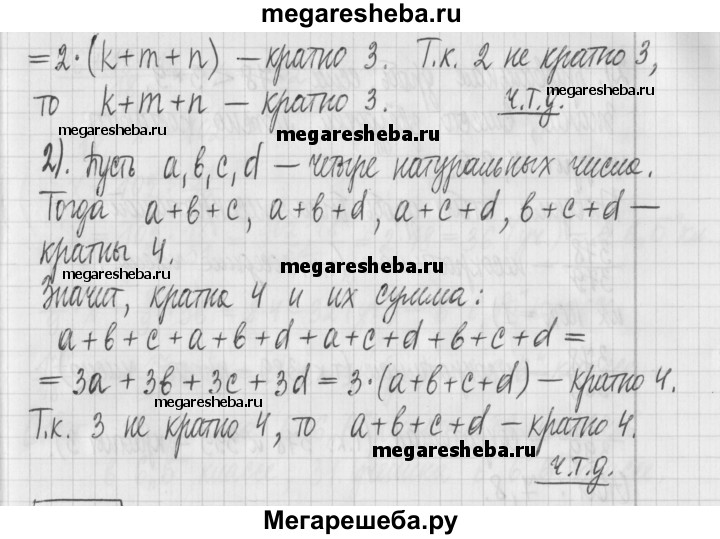 megaresheba.ru
= 2·(k+m+n) – кратно 3. Т.к. 2 не кратно 3,
то k+m+n – кратно 3. ч.т.д.
megaresheba.ru megaresheba.ru megaresheba.ru
2). Пусть a, b, c, d – четыре натуральных числа.
Тогда a+b+c, a+b+d, a+c+d, b+c+d –
кратны 4.
megaresheba.ru megaresheba.ru
Значит, кратна 4 и их сумма:
a+b+c+a+b+d+a+c+d+b+c+d =
= 3a + 3b + 3c + 3d = 3·(a+b+c+d) – кратно 4.
megaresheba.ru
Т.к. 3 не кратно 4, то a+b+c+d – кратно 4.
megaresheba.ru
ч.т.д.
Мегарешеба.ру